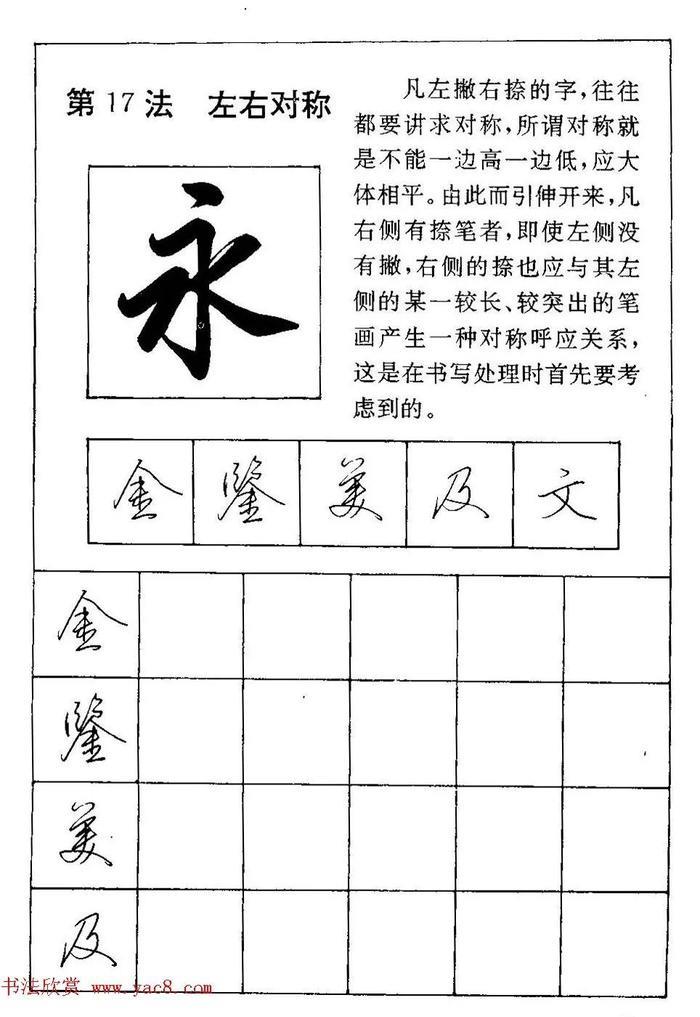 第17法 左右对称
凡左撇右捺的字,往往
都要讲求对称,所谓对称就
是不能一边高一边低,应大
体相平。由此而引伸开来,凡
右侧有捺笔者,即使左侧没
有撇,右侧的捺也应与其左
侧的某一较长、较突出的笔
画产生一种对称呼应关系,
这是在书写处理时首先要考
虑到的。
永
金 鑒 美 及 文
金
鑒
美
及
书法欣赏 www.yac8.com